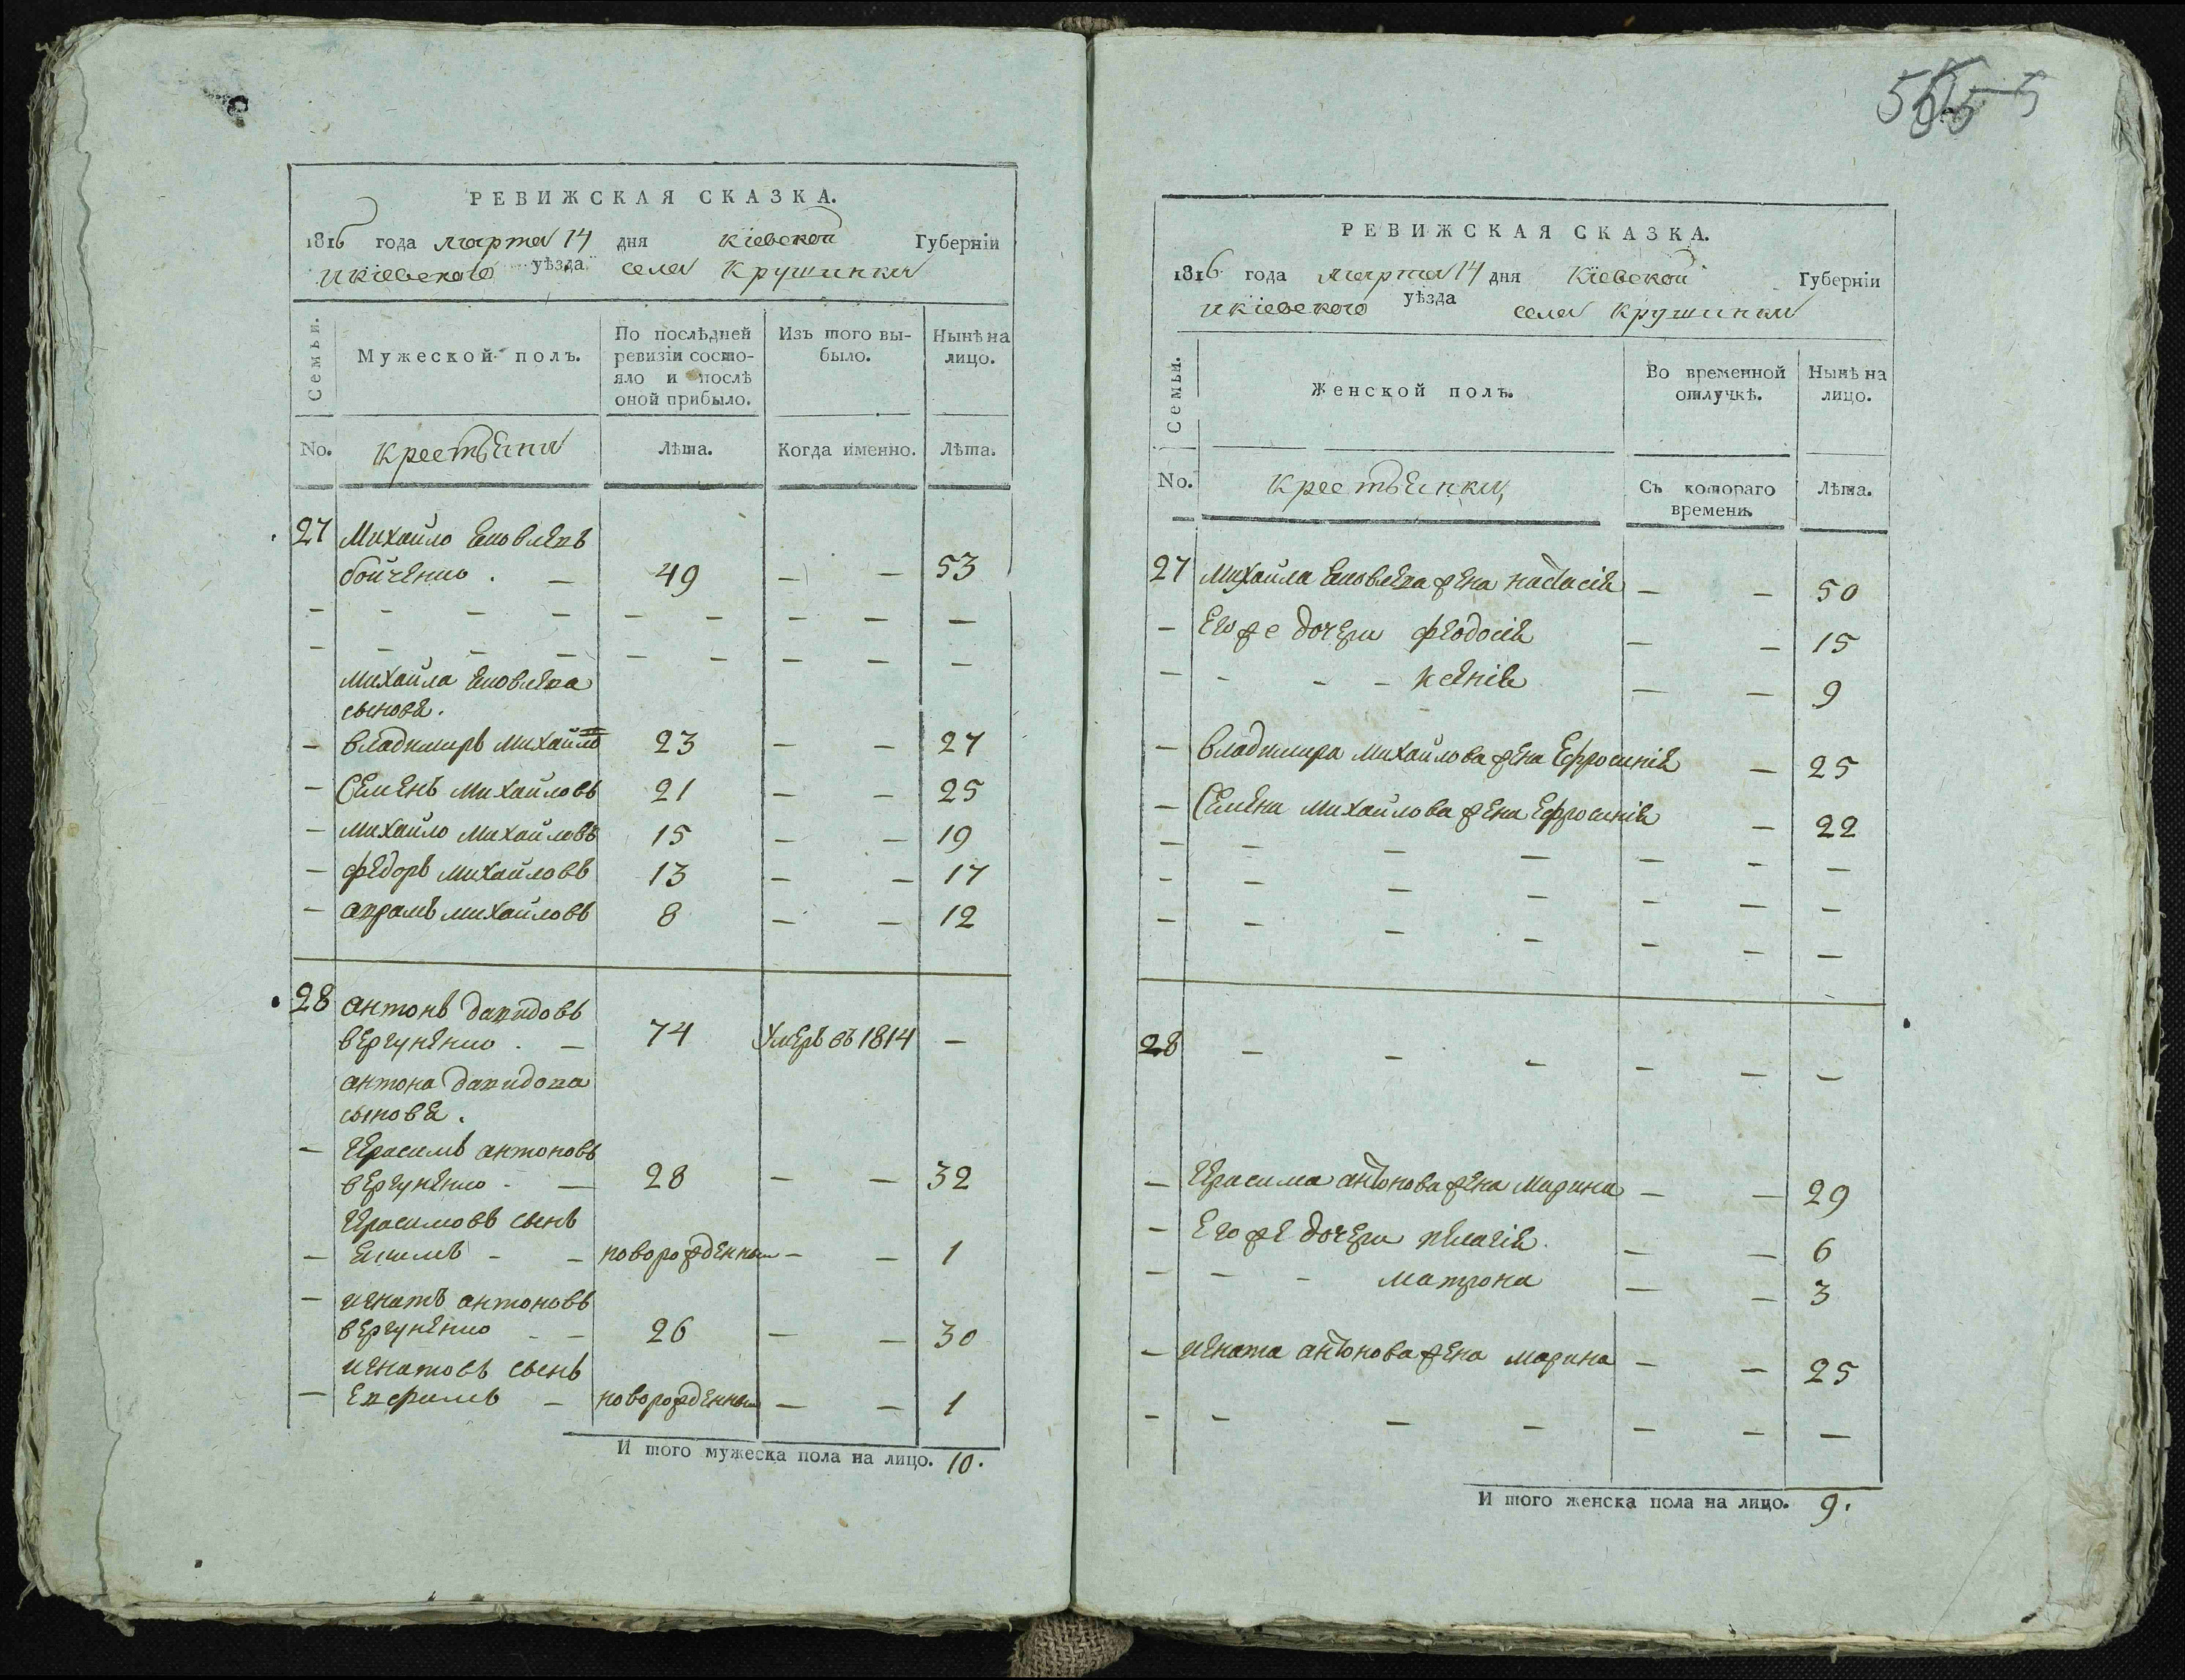 555
РЕВИЖСКАЯ СКАЗКА.
1816 года марта 14 дня Кіевской Губерніи
и Кіевского уѣзда села Крушинки
Семьи.
Мужеской полъ.
По послѣдней
ревизіи состо-
яло и послѣ
оной прибыло.
Изъ того вы-
было.
Нынѣ на
лицо.
No.
Крестьяня
Лѣта.
Когда именно.
Лѣта.
27 Михайло Яковлевъ
бойченко . — 49 — — 53
Михайла Яковлева
сыновя.
— владимиръ михайло 23 — — 27
— Семенъ михайловъ 21 — — 25
— михайло михайловъ 15 — — 19
— федоръ михайловъ 13 — — 17
— аврамъ михайловъ 8 — — 12
28 антонъ давидовъ
вергуненко . — 74 Умеръ въ 1814 —
антона давидова
сыновя.
— Герасимъ антоновъ
вергуненко - — 28 — — 32
Герасимовъ сынъ
— Якимъ - - новорожденный — — 1
— игнатъ антоновъ
вергуненко - - 26 — — 30
игнатовъ сынъ
— Евфимъ — новорожденный — — 1
И того мужеска пола на лицо. 10.
РЕВИЖСКАЯ СКАЗКА.
1816 года марта 14 дня Кіевской Губерніи
и Кіевского уѣзда села Крушинки
Семьи.
Женской полъ.
Во временной
отлучкѣ.
Нынѣ на
лицо.
No.
Крестьянки
Съ котораго
времени.
Лѣта.
27 Михайла Яковлева жена настасія — — 50
— Его же дочери феодосія — — 15
— - - - ксенія — — 9
— владимира михайлова жена Ефросинія — 25
— Семена михайлова жена Ефросинія — 22
28 — — — — — —
— Герасима антонова жена марина — — 29
— Его же дочери пелагія — — 6
— - - матрона — — 3
— игната антонова жена марина — — 25
И того женска пола на лицо. 9.